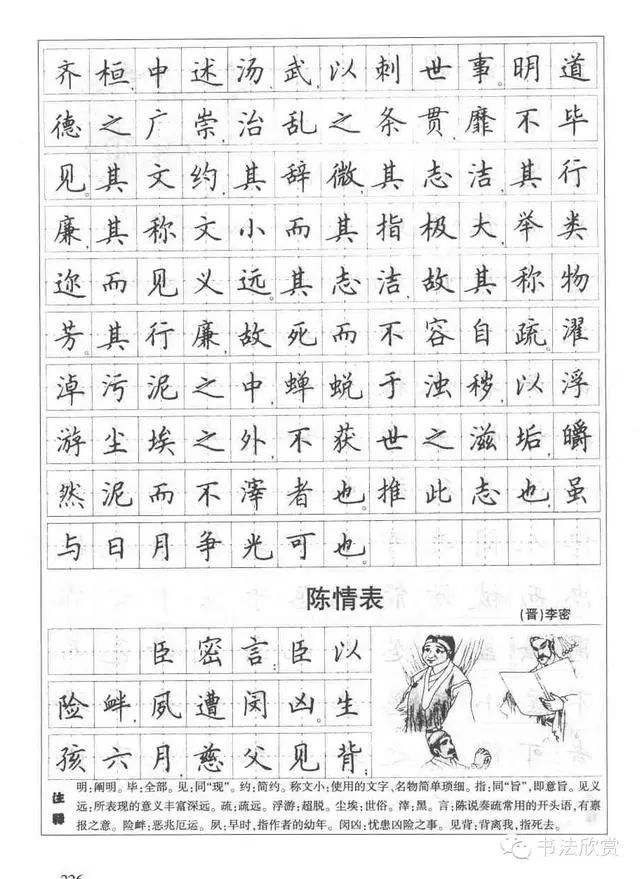 齐桓,中述汤武,以刺世事。明道
德之广崇,治乱之条贯,靡不毕
见。其文约,其辞微,其志洁,其行
廉,其称文小而其指极大,举类
迩而见义远。其志洁,故其称物
芳。其行廉,故死而不容自疏。濯
淖污泥之中,蝉蜕于浊秽,以浮
游尘埃之外,不获世之滋垢,皭
然泥而不滓者也。推此志也,虽
与日月争光可也。
陈情表
(晋)李密
臣密言:臣以
险衅,夙遭闵凶。生
孩六月,慈父见背;
注释
明:阐明。毕:全部。见:同“现”。约:简约。称文小:使用的文字,名物简单琐细。指:同“旨”,即意旨。见义
远:所表现的意义丰富深远。疏:疏远。浮游:超脱。尘埃:世俗。滓:黑。言:陈说奏疏常用的开头语,有禀
报之意。险衅:恶兆厄运。夙:早时,指作者的幼年。闵凶:忧患凶险之事。见背:背离我,指死去。
书法欣赏